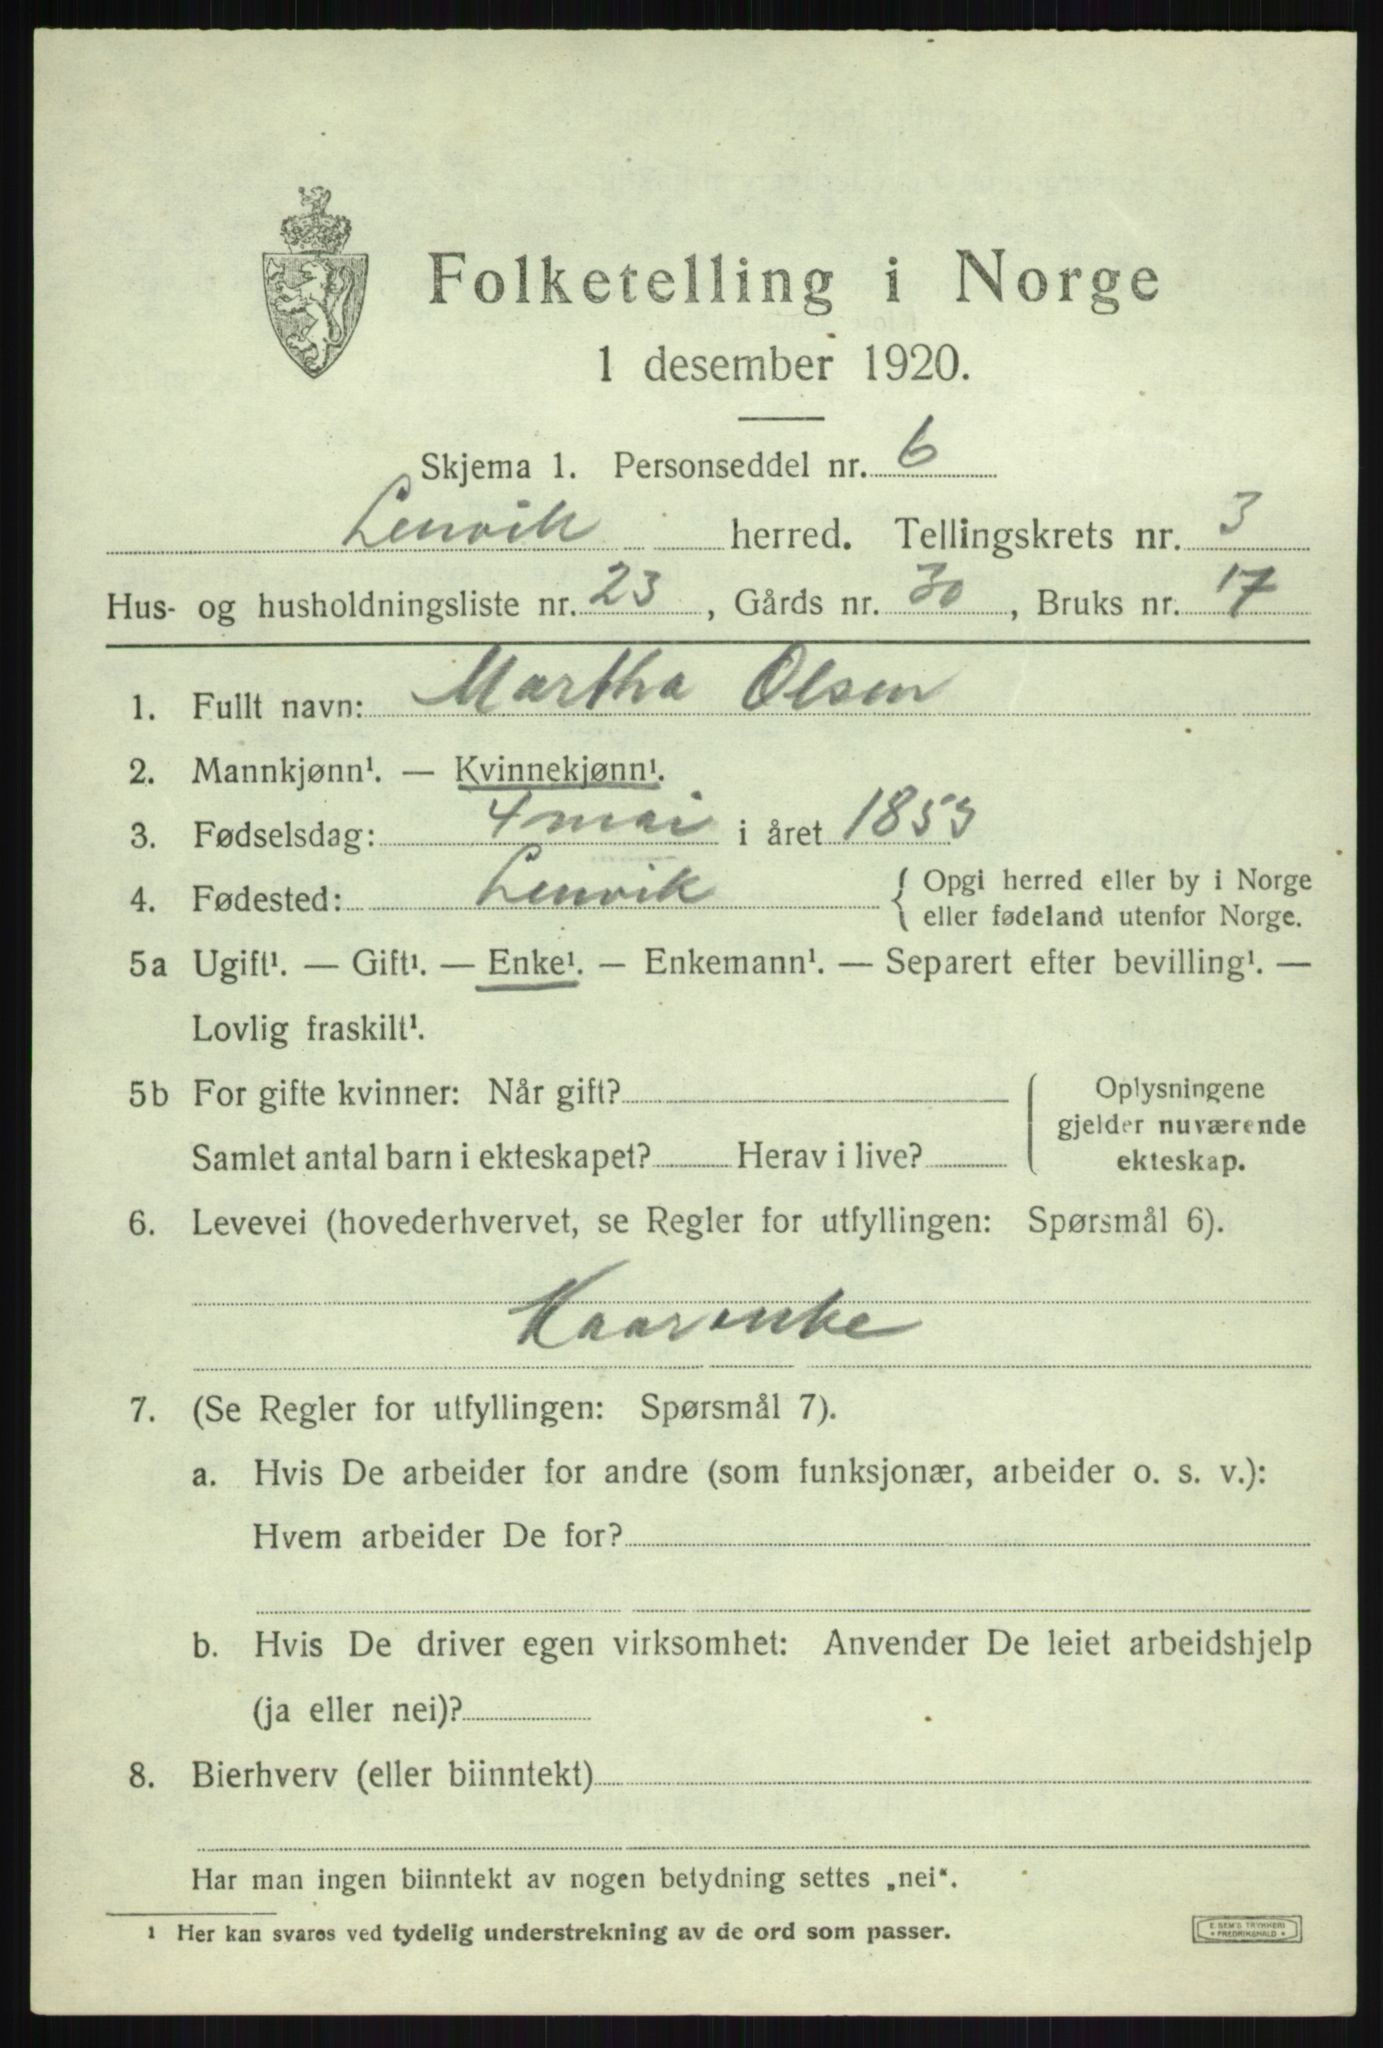 Folketelling i Norge
1 desember 1920.
Skjema 1. Personseddel nr. 6
Lenvik herred. Tellingskrets nr. 3
Hus- og husholdningsliste nr. 23, Gårds nr. 30, Bruks nr. 17
1. Fullt navn: Martha Olsen
2. Mannkjønn¹. — Kvinnekjønn¹.
3. Fødselsdag: 4 mai i året 1853
4. Fødested: Lenvik { Opgi herred eller by i Norge
eller fødeland utenfor Norge.
5a Ugift¹. — Gift¹. — Enke¹. — Enkemann¹. — Separert efter bevilling¹. —
Lovlig fraskilt¹.
5b For gifte kvinner: Når gift?
Samlet antal barn i ekteskapet? Herav i live?
Oplysningene
gjelder nuværende
ekteskap.
6. Levevei (hovederhvervet, se Regler for utfyllingen: Spørsmål 6).
Kaarenke
7. (Se Regler for utfyllingen: Spørsmål 7).
a. Hvis De arbeider for andre (som funksjonær, arbeider o. s. v.):
Hvem arbeider De for?
b. Hvis De driver egen virksomhet: Anvender De leiet arbeidshjelp
(ja eller nei)?
8. Bierhverv (eller biinntekt)
Har man ingen biinntekt av nogen betydning settes „nei“.
1 Her kan svares ved tydelig understrekning av de ord som passer.
E. SEM'S TRYKKERI
FREDRIKSHALD